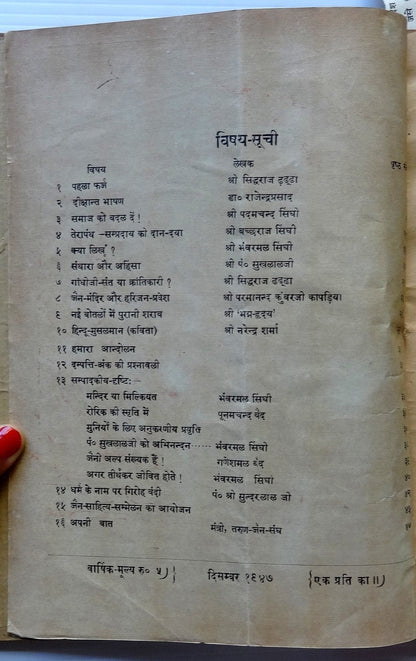 विषय-सूची
विषय लेखक पृष्ठ
१ पहला फर्ज श्री सिद्धराज ढ्ढ्ढा
२ दीक्षान्त भाषण डा० राजेन्द्रप्रसाद
३ समाज को बदल दें ! श्री पदमचन्द सिंघी
४ तेरापंथ -सम्प्रदाय की दान-दया श्री बच्छराज सिंघी
५ क्या लिखूं ? श्री भंवरमल सिंघी
६ संथारा और अहिंसा श्री पं० सुखलालजी
७ गांधीजी-संत या क्रांतिकारी ? श्री सिद्धराज ढ्ढ्ढा
८ जैन-मंदिर और हरिजन-प्रवेश श्री परमानन्द कुंवरजी कापड़िया
९ नई बोतलों में पुरानी शराब श्री 'भग्न-हृदय'
१० हिन्दू-मुसलमान (कविता) श्री नरेन्द्र शर्मा
११ हमारा आन्दोलन
१२ दम्पत्ति-अंक की प्रश्नावली
१३ सम्पादकीय-दृष्टि:—
मन्दिर या मिल्कियत भंवरमल सिंघी
रोरिक की स्मृति में पूनमचन्द वैद
मुनियों के लिए अनुकरणीय प्रवृत्ति
पं० सुखलालजी को अभिनन्दन...... भंवरमल सिंघी
जैनी अल्प संख्यक हैं ! गणेशमल वैद
अगर तीर्थंकर जीवित होते ! भंवरमल सिंघी
१४ धर्म के नाम पर गिरोह बंदी पं० श्री सुन्दरलाल जी
१५ जैन-साहित्य-सम्मेलन का आयोजन
१६ अपनी बात मंत्री, तरुण-जैन-संघ
वार्षिक-मूल्य रु० ५) } दिसम्बर १९४७ { एक प्रति का ॥)